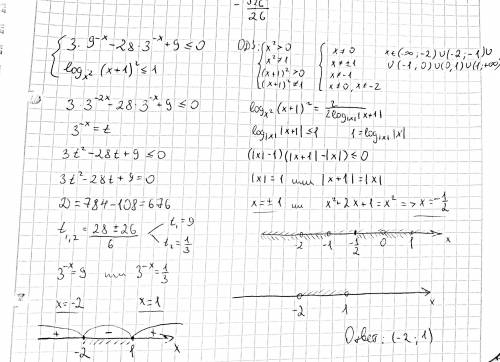 576
26
{ 3·9^-x - 28·3^-x + 9 ≤ 0
log_x² (x+1)² ≤ 1
3·3^-2x - 28·3^-x + 9 ≤ 0
3^-x = t
3t² - 28t + 9 ≤ 0
3t² - 28t + 9 = 0
D = 784 - 108 = 676
t_1,2 = (28 ± 26)/6 < t_1 = 9
t_2 = 1/3
3^-x = 9 или 3^-x = 1/3
x = -2 x = 1
+ - +
-2 1 x
ОДЗ: { x² > 0
x² ≠ 1
(x+1)² > 0
(x+1)² ≠ 1
{ x ≠ 0
x ≠ ±1
x ≠ -1
x ≠ 0, x ≠ -2
x ∈ (-∞; -2) ∪ (-2; -1) ∪
∪ (-1; 0) ∪ (0; 1) ∪ (1; +∞)
log_x² (x+1)² = 2/2 log_|x| |x+1|
log_|x| |x+1| ≤ 1 1 = log_|x| |x|
(|x| - 1)(|x+1| - |x|) ≤ 0
|x| = 1 или |x+1| = |x|
x = ±1 или x² + 2x + 1 = x² => x = -1/2
-2 -1 -1/2 0 1 x
-2 1 x
Ответ: (-2; 1)